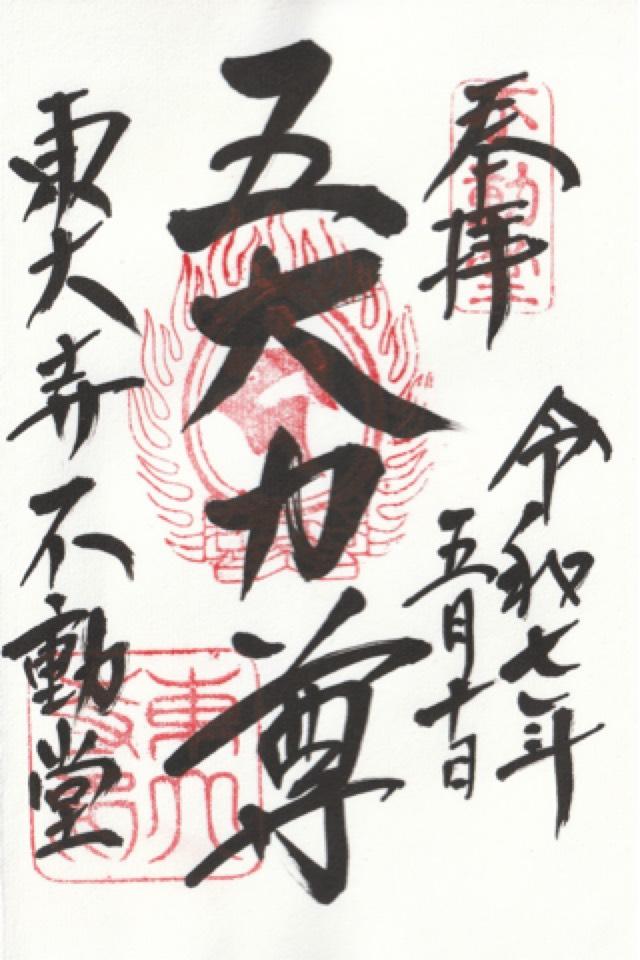 奉拝
令和七年
五月十日
五大力尊
東大寺不動堂
不動堂